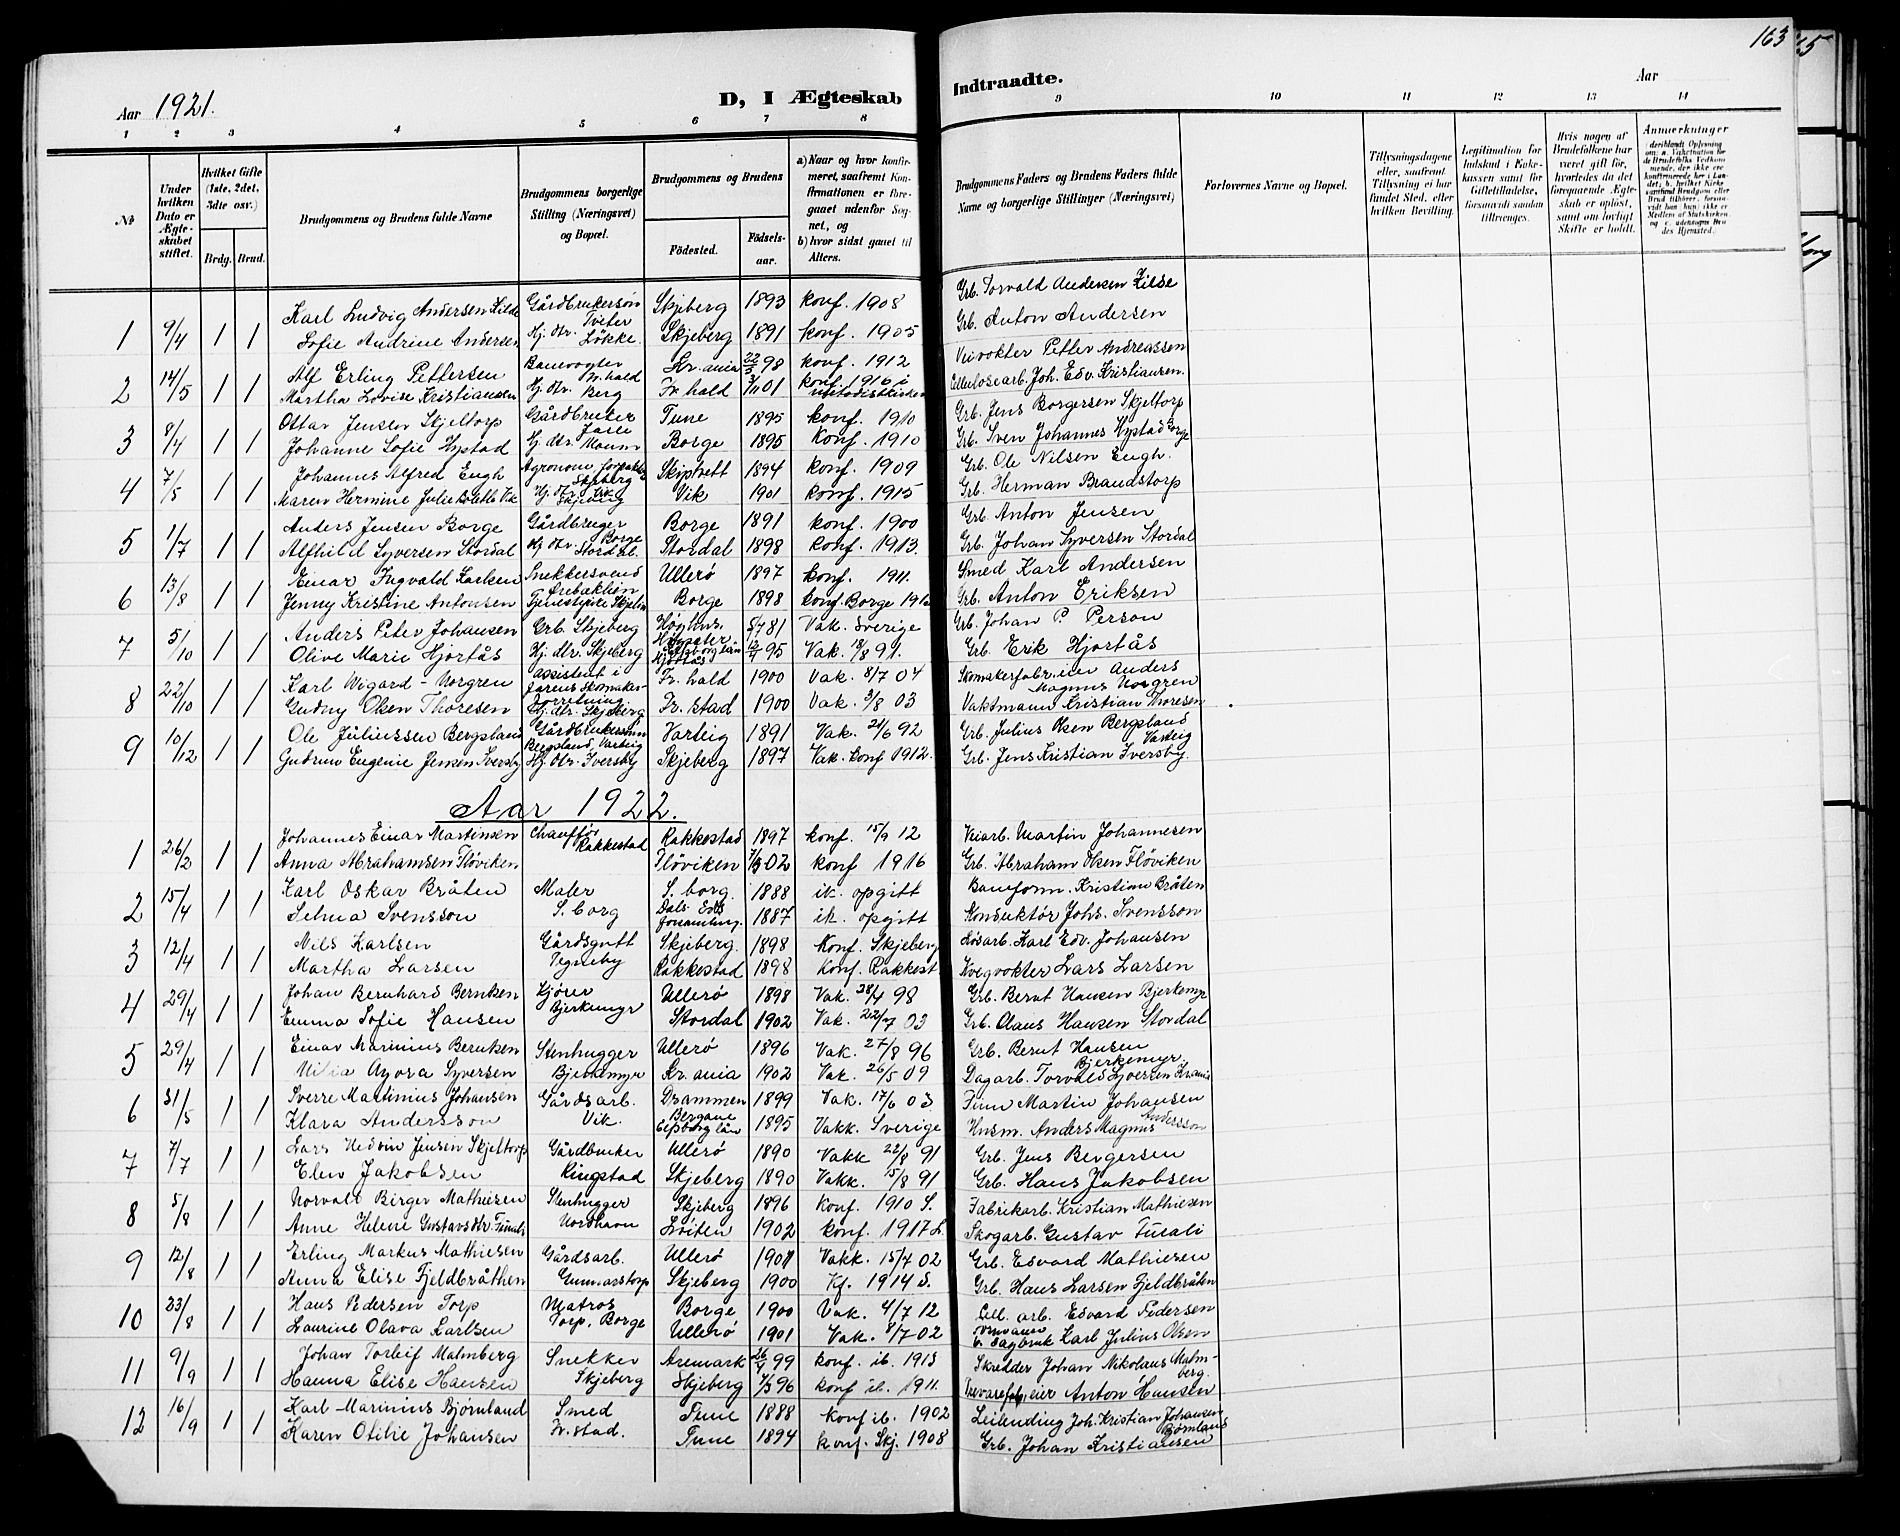 163
Aar 1921.
D, I Ægteskab Indtraadte.
Aar
1 2 3 4 5 6 7 8 9 10 11 12 13 14
№
Under hvilken Dato er Ægteskabet stiftet.
Hvilket Gifte (1ste, 2det, 3dte osv.)
Brdg. Brud.
Brudgommens og Brudens fulde Navne
Brudgommens borgerlige Stilling (Næringsvei) og Bopæl.
Brudgommens og Brudens
Födested. Födselsaar.
a) Naar og hvor konfirmeret, saafremt Konfirmationen er foregaaet udenfor Sognet, og
b) hvor sidst gaaet til Alters.
Brudgommens Faders og Brudens Faders fulde Navne og borgerlige Stillinger (Næringsvei)
Forlovernes Navne og Bopæl.
Tillysningsdagene eller, saafremt Tillysning ei har fundet Sted, efter hvilken Bevilling.
Legitimation for Indskud i Enkekassen samt for Giftetilladelse, forsaavidt saadan tiltrænges.
Hvis nogen af Brudefolkene har været gift før, hvorledes da det foregaaende Ægteskab er opløst, samt om lovligt Skifte er holdt.
Anmerkninger
1 9/4 1 1 Karl Ludvig Andersen Kilde Gårdbrukersøn Tveter Skjeberg 1893 konf. 1908 Grb. Torvald Andersen Kilse
Sofie Andrine Andersen Hj. dtr. Løkke Skjeberg 1891 konf. 1905 Grb. Anton Andersen
2 14/5 1 1 Alf Erling Pettersen Banevogter Fr.hald Kr.ania 22/3 98 konf. 1912 Veivokter Petter Andreassen
Martha Lovise Kristiansen Hj. dtr. Berg Fr.hald 3/11 01 konf. 1916 i metodistkirken Cellulosearb. Joh. Edv. Kristiansen.
3 8/4 1 1 Ottar Jensen Skjeltorp Gårdbruker Tune 1895 konf. 1910 Grb. Jens Borgersen Skjeltorp
Johanne Sofie Hystad Hj. dtr. Moum Borge 1895 Konf. 1910 Grb. Sven Johannes Hystad Borge
4 7/5 1 1 Johannes Alfred Engh Agronom, forpakter Skjeberg Skiptvett 1894 konf. 1909 Grb. Ole Nilsen Engh.
Maren Hermine Julie Bolette Vik Hj. dtr. Vik Skjeberg Vik 1901 konf. 1915 Grb. Herman Brandstorp
5 1/7 1 1 Anders Jensen Borge Gårdbruger Borge Borge 1891 konf. 1900 Grb. Anton Jensen
Alfhild Syversen Stordal Hj. dtr. Stordal. Stordal 1898 konf. 1913. Grb. Johan Syversen Stordal
6 13/8 1 1 Einar Ingvald Karlsen Snekkersvend Ullerø 1897 konf. 1911. Smed Karl Andersen
Jenny Kristine Antonsen Tjenestpike Borge 1898 konf. Borge Grb. Anton Eriksen
7 5/10 1 1 Anders Peter Johansen Grb. Skjeberg 5/7 81 Vak. Sverige Grb. Johan P. Person
Olive Marie Hjortås Hj. dtr. Skjeberg Hjortås 95 Vak. 18/8 91. Grb. Erik Hjortås
8 22/10 1 1 Karl Wigard Norgren Assistent i farens Skomakerforretning Fr.hald 1900 Vak. 8/7 04 Skomakerfabr. eier Anders Magnus Norgren
Gudny Olsen Thoresen Hj. dtr. Skjeberg Fr.stad 1900 Vak. 3/8 03 Vaktmann Kristian Thoresen
9 10/12 1 1 Ole Juliussen Bergsland Gårdbrukersønn Bergsland, Varteig Varteig 1891 Vak. 21/6 92 Grb. Julius Olsen Bergsland Varteig
Gudrun Eugenie Jensen Iversby Hj. dtr. Iversby Skjeberg 1897 Vak. konf 1912. Grb. Jens Kristian Iversby.
Aar 1922.
1 26/2 1 1 Johannes Einar Martinsen Chauffør Rakkestad Rakkestad 1897 konf. 15/9 12 Veiarb. Martin Johannesen
Anna Abrahamsen Fløviken Fløviken 7/3 02 konf 1916 Grb. Abraham Olsen Fløviken
2 15/4 1 1 Karl Oskar Bråten Maler S. borg. 1888 ik. opgitt Baneform. Kristian Bråten
Selma Svensson S. borg Dals Eds forsamling. 1887 ik. opgitt Konduktør Johs. Svensson
3 12/4 1 1 Nils Karlsen Gårdsgutt Skjeberg. 1898 Konf. Skjeberg Løsarb. Karl Edv. Johansen
Martha Larsen Tegneby Rakkestad 1898 Konf. Rakkest. Kvegvokter Lars Larsen
4 29/4 1 1 Johan Bernhard Berntsen Kjører Ullerø 1898 Vak. 28/4 98 Grb. Bernt Hansen Bjerkemyr
Emma Sofie Hansen Bjerkemyr Stordal 1902 Vak. 22/7 03 Grb. Claus Hansen Stordal
5 29/4 1 1 Einar Marinius Berntsen Stenhugger Ullerø 1896 Vak. 27/8 96 Grb. Bernt Hansen Bjerkemyr.
Syversen Bjerkemyr Kr.ania 1902 Vak. 26/5 09 Dagarb. Torvald Syversen Kr.ania
6 31/5 1 1 Sverre Martinius Johansen Gårdsarb. Drammen 1899 Vak. 17/6 03 Martin Johansen
Klara Andersson Vik. Bergane Elfsborg län 1895 Vakk. Sverige Husm. Anders Magnus Andersson
7 7/7 1 1 Lars Hedvin Jensen Skjeltorp Gårdbruker Ullerø 1890 Vakk 22/8 91 Grb. Jens Bergersen
Elen Jakobsen Ringstad Skjeberg 1890 Vakk. 15/8 91 Grb. Hans Jakobsen
8 5/8 1 1 Norvald Birger Mathiesen Stenhugger Skjeberg 1896 Konf. 1910 S. Fabrikarb. Kristian Mathiesen
Anne Helene Gustavsdtr. Nordhavn Løiten 1902 konf. 1917 L. Skogarb. Gustav
9 12/8 1 1 Erling Markus Mathiesen Gårdsarb. Ullerø 1901 Vakk. 15/7 02 Grb. Edvard Mathiesen
Anna Elise Fjeldbråthen Gunnarstorp Skjeberg 1900 Kf. 1914 S. Grb. Hans Larsen Fjeldbråten
10 23/8 1 1 Hans Pedersen Torp Matros Borge 1900 Vak. 4/7 12 Cell. arb. Edvard Pedersen
Laurine Olava Karlsen Torp, Borge Ullerø 1901 Vak. 8/7 02 Ormåsen v. Sagbruk Karl Julius Olsen
11 9/9 1 1 Johan Torleif Malmberg Snekker Aremark 26/4 99 konf. ib. 1913 Skredder Johan Nikolaus Malmberg.
Hanna Elise Hansen Skjeberg Skjeberg 7/3 96 konf ib. 1911. Trevarefab. eier Anton Hansen
12 16/9 1 1 Karl Marinius Bjørnland Smed Tune 1888 konf ib. 1902 Leilending Joh. Kristian Johansen Bjørnland
Karen Otilie Johansen Fr.stad. Tune 1894 konf. Skj. 1908 Grb. Johan Kristiansen